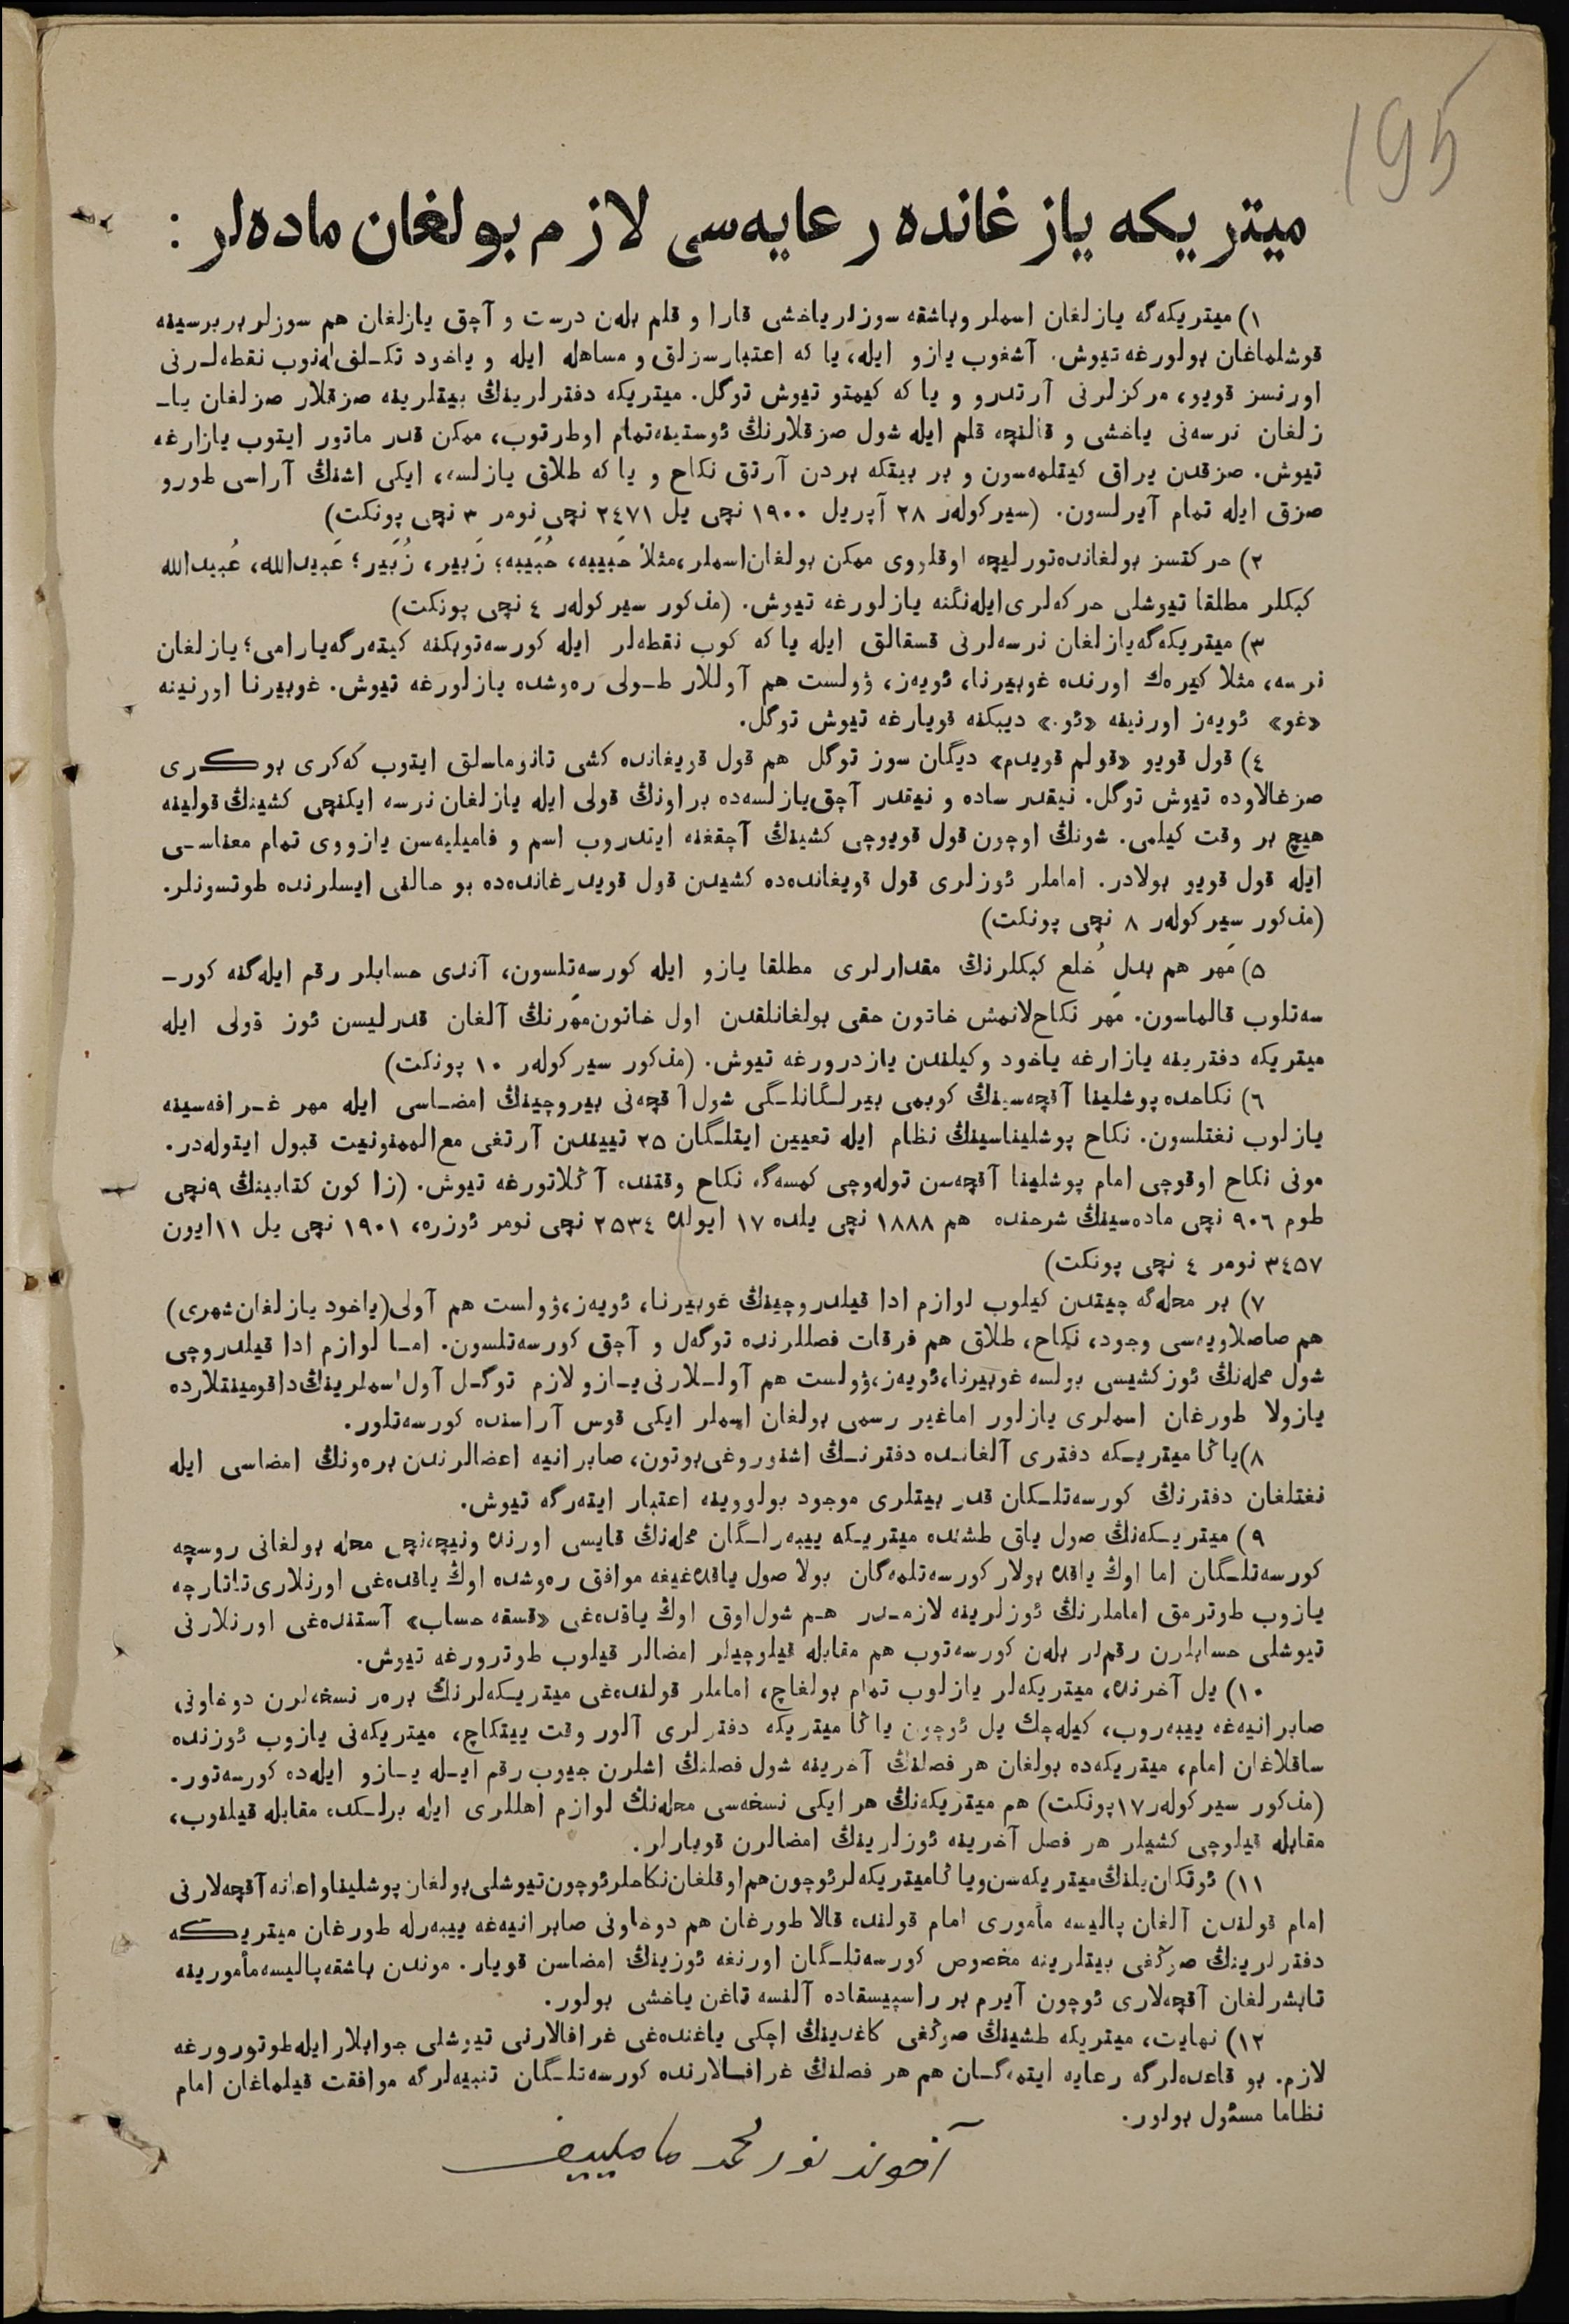 195
ميتريكه يازغانده رعايه‌سى لازم بولغان ماده‌لر :
١) ميتريكه‌گه يازلغان اسملر وباشقه سوزلر ياخشى قارا و قلم بله‌ن درست و آچق يازلغان هم سوزلر بربرسينه
قوشلماغان بولورغه تيوش. آشغوب يازو ايله، يا كه اعتبارسزلق و مساهله ايله و ياخود تكلف‌له‌نوب نقطه‌لرنى
اورنسز قويو، مركزلرنى آرتدرو و يا كه كيمتو تيوش توگل. ميتريكه دفترلرينڭ بيتلرينه صزقلار صزلغان يا‍ـ
زلغان نرسه‌نى ياخشى و قالنچه قلم ايله شول صزقلارنڭ ئوستينه‌تمام اوطرتوب، ممكن قدر ماتور ايتوب يازارغه
تيوش. صزقدن يراق كيتلمه‌سون و بر بيتكه بردن آرتق نكاح و يا كه طلاق يازلسه، ايكى اشنڭ آراسى طورو
صزق ايله تمام آيرلسون. (سيركولهر ٢٨ آپريل ١٩٠٠ نچى يل ٢٤٧١ نچى نومر ٣ نچى پونكت)
٢) حركتسز بولغانده‌تورليچه اوقلووى ممكن بولغان‌اسملر،مثلا حَبيبه، حُبَيبه؛ زَبير، زُبَير؛ عَبيدالله، عُبيدالله
كبكلر مطلقا تيوشلى حركه‌لرى‌ايله‌نگنه يازلورغه تيوش. (مذكور سيركولهر ٤ نچى پونكت)
٣) ميتريكه‌گه‌يازلغان نرسه‌لرنى قسقالق ايله يا كه كوب نقطه‌لر ايله كورسه‌توبكنه كيته‌رگه‌يارامى؛ يازلغان
نرسه، مثلا كيره‌ك اورنده غوبيرنا، ئويه‌ز، ۋولست هم آوللار طولى ره‌وشده يازلورغه تيوش. غوبيرنا اورنينه
«غو» ئويه‌ز اورنينه «ئو.» ديبكنه قويارغه تيوش توگل.
٤) قول قويو «قولم قويدم» ديگان سوز توگل هم قول قويغانده كشى تانوماسلق ايتوب كه‌كرى بوكرى
صزغالاوده تيوش توگل. نيقدر ساده و نيقدر آچق‌يازلسه‌ده براونڭ قولى ايله يازلغان نرسه ايكنچى كشينڭ قولينه
هيچ بر وقت كيلمى. شونڭ اوچون قول قويوچى كشينڭ آچقغنه ايتدروب اسم و فاميليه‌سن يازووى تمام معناسى
ايله قول قويو بولادر. اماملر ئوزلرى قول قويغانده‌ده كشيدن قول قويدرغانده‌ده بو حالنى ايسلرنده طوتسونلر.
(مذكور سيركولهر ٨ نچى پونكت)
٥) مَهر هم بدلِ خُلع كبكلرنڭ مقدارلرى مطلقا يازو ايله كورسه‌تلسون، آندى حسابلر رقم ايله‌گنه كور‍ـ
سه‌تلوب قالماسون. مَهر نكاح‌لانمش خاتون حقى بولغانلقدن اول خاتون‌مَهرنڭ آلغان قدرليسن ئوز قولى ايله
ميتريكه دفترينه يازارغه ياخود وكيلندن يازدرورغه تيوش. (مذكور سيركولهر ١٠ پونكت)
٦) نكاحده پوشلينا آقچه‌سينڭ كوبمى بيرلگانلگى شول آقچه‌نى بيروچينڭ امضاسى ايله مهر غرافه‌سينه
يازلوب نغتلسون. نكاح پوشليناسينڭ نظام ايله تعيين ايتلگان ٢٥ تييندن آرتغى مع‌الممنونيت قبول ايتوله‌در.
مونى نكاح اوقوچى امام پوشلينا آقچه‌سن توله‌وچى كمسه‌گه نكاح وقتنده آڭلاتورغه تيوش. (زاكون كتابينڭ ٩نچى
طوم ٩٠٦ نچى ماده‌سينڭ شرحنده هم ١٨٨٨ نچى يلده ١٧ ايولده ٢٥٣٤ نچى نومر ئوزره، ١٩٠١ نچى يل ١١ايون
٣٤٥٧ نومر ٤ نچى پونكت)
٧) بر محله‌گه چيتدن كيلوب لوازم ادا قيلدروچينڭ غوبيرنا، ئويه‌ز،ۋولست هم آولى(ياخود يازلغان‌شهرى)
هم صاصلاويه‌سى وجود، نكاح، طلاق هم فرقات فصللرنده توگه‌ل و آچق كورسه‌تلسون. اما لوازم ادا قيلدروچى
شول محله‌نڭ ئوز كشيسى بولسه غوبيرنا،ئويه‌ز،ۋولست هم آوللارنى يازو لازم توگل آول‌اسملرينڭ‌داقومينتلارده
يازولا طورغان اسملرى يازلور اماغير رسمى بولغان اسملر ايكى قوس آراسنده كورسه‌تلور.
٨)ياڭا ميتريكه دفترى آلغانده دفترنڭ اشنوروغى‌بوتون، صابرانيه اعضالرندن بره‌ونڭ امضاسى ايله
نغتلغان دفترنڭ كورسه‌تلگان قدر بيتلرى موجود بولووينه اعتبار ايته‌رگه تيوش.
٩) ميتريكه‌نڭ صول ياق طشنده ميتريكه ييبه‌رلگان محله‌نڭ قايسى اورنده ونيچه‌نچى محله بولغانى روسچه
كورسه‌تلگان اما اوڭ ياقده بولار كورسه‌تلمه‌گان بولا صول ياقده‌غيغه موافق ره‌وشده اوڭ ياقده‌غى اورنلارى‌تاتارچه
يازوب طوترمق اماملرنڭ ئوزلرينه لازمدر هم شول‌اوق اوڭ ياقده‌غى «قسقه حساب» آستنده‌غى اورنلارنى
تيوشلى حسابلرن رقم‌لر بله‌ن كورسه‌توب هم مقابله قيلوچيلر امضالر قيلوب طوترورغه تيوش.
١٠) يل آخرنده، ميتريكه‌لر يازلوب تمام بولغاچ، اماملر قولنده‌غى ميتريكه‌لرنڭ بره‌ر نسخه‌لرن دوخاونى
صابرانيه‌غه ييبه‌روب، كيله‌چك يل ئوچون ياڭا ميتريكه دفترلرى آلور وقت ييتكاچ، ميتريكه‌نى يازوب ئوزنده
ساقلاغان امام، ميتريكه‌ده بولغان هر فصلنڭ آخرينه شول فصلنڭ اشلرن جيوب رقم ايله يازو ايله‌ده كورسه‌تور.
(مذكور سيركولهر ١٧پونكت) هم ميتريكه‌نڭ هر ايكى نسخه‌سى محله‌نڭ لوازم اهللرى ايله برلكده مقابله قيلنوب،
مقابله قيلوچى كشيلر هر فصل آخرينه ئوزلرينڭ امضالرن قويارلر.
١١) ئوتكان‌يلنڭ‌ميتريكه‌سن‌وياڭاميتريكه‌لرئوچون‌هم‌اوقلغان‌نكاحلرئوچون‌تيوشلى‌بولغان‌پوشليناواعانه‌آقچه‌لارنى
امام قولندن آلغان پاليسه مأمورى امام قولنده قالا طورغان هم دوخاونى صابرانيه‌غه ييبه‌رله طورغان ميتريكه
دفترلرينڭ صوڭغى بيتلرينه مخصوص كورسه‌تلگان اورنغه ئوزينڭ امضاسن قويار. موندن باشقه‌پاليسه‌مأمورينه
تابشرلغان آقچه‌لارى ئوچون آيرم بر راسپيسقاده آلنسه تاغن ياخشى بولور.
١٢) نهايت، ميتريكه طشينڭ صوڭغى كاغدينڭ اچكى ياغنده‌غى غرافالارنى تيوشلى جوابلار ايله‌طوتورورغه
لازم. بو قاعده‌لرگه رعايه ايتمه‌گان هم هر فصلنڭ غرافالارنده كورسه‌تلگان تنبيه‌لرگه موافقت قيلماغان امام
نظاما مسئول بولور.
آخوند نورمحمد مامليیف